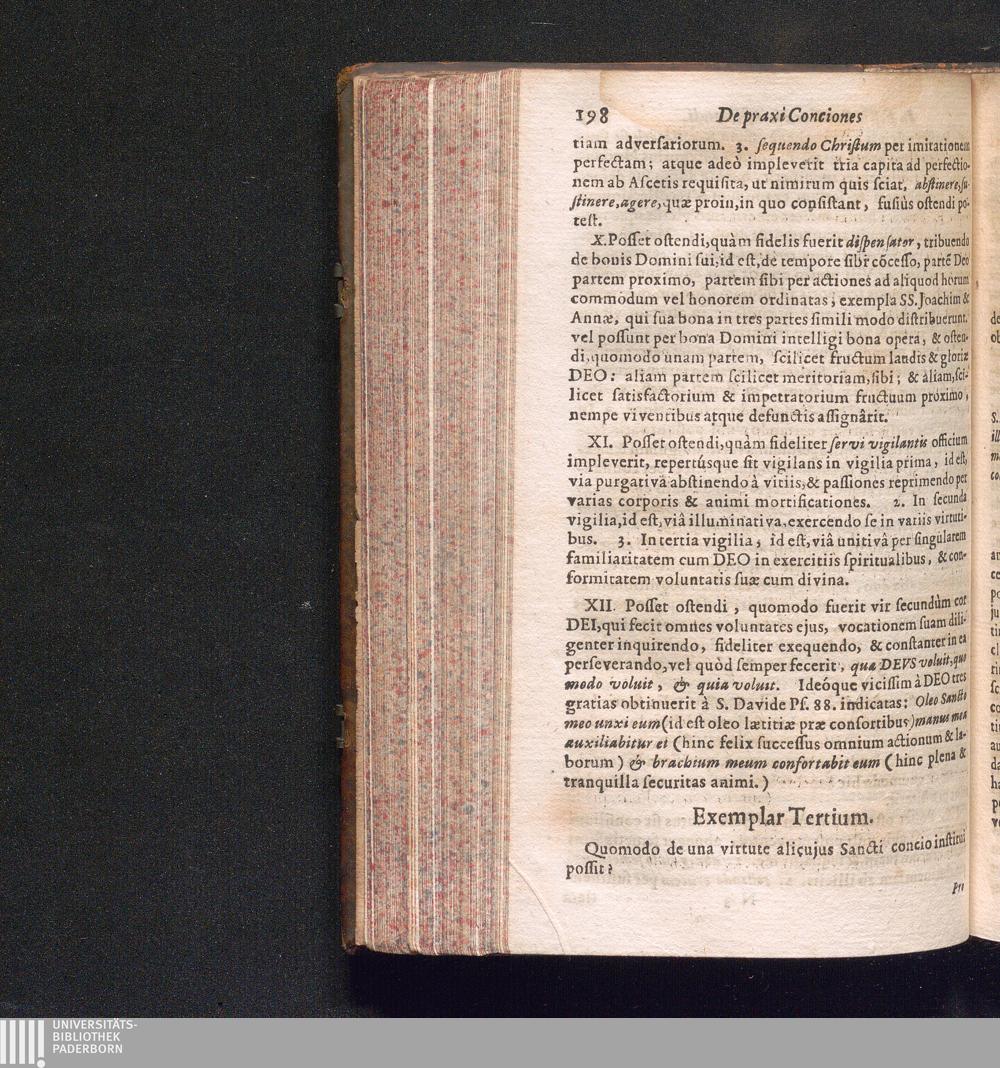 198 De praxi Conciones
tiam adversariorum. 3. sequendo Christum per imitationem
perfectam; atque adeò impleverit tria capita ad perfectio-
nem ab Ascetis requisita, ut nimirum quis sciat, abstinere, su-
stinere, agere, quæ proin, in quo consistant, fusiùs ostendi po-
test.
X. Posset ostendi, quàm fidelis fuerit dispensator, tribuendo
de bonis Domini sui, id est, de tempore sibi cōcesso, partē Deo
partem proximo, partem sibi per actiones ad aliquod horum
commodum vel honorem ordinatas; exempla SS. Joachim &
Annæ, qui sua bona in tres partes simili modo distribuerunt.
vel possunt per bona Domini intelligi bona opera, & osten-
di, quomodo unam partem, scilicet fructum laudis & gloriæ
DEO: aliam partem scilicet meritoriam, sibi; & aliam, sci-
licet satisfactorium & impetratorium fructuum proximo,
nempe viventibus atque defunctis assignârit.
XI. Posset ostendi, quàm fideliter servi vigilantis officium
impleverit, repertúsque sit vigilans in vigilia prima, id est,
via purgativâ abstinendo à vitiis, & passiones reprimendo per
varias corporis & animi mortificationes. 2. In secunda
vigilia, id est, viâ illuminativa, exercendo se in variis virtuti-
bus. 3. In tertia vigilia, id est, viâ unitivâ per singularem
familiaritatem cum DEO in exercitiis spiritualibus, & con-
formitatem voluntatis suæ cum divina.
XII. Posset ostendi, quomodo fuerit vir secundùm cor
DEI, qui fecit omnes voluntates ejus, vocationem suam dili-
genter inquirendo, fideliter exequendo, & constanter in ea
perseverando, vel quòd semper fecerit, quæ DEVS voluit, quo
modo voluit, & quia voluit. Ideóque vicissim à DEO tres
gratias obtinuerit à S. Davide Ps. 88. indicatas: Oleo Sancto
meo unxi eum (id est oleo lætitiæ præ consortibus) manus mea
auxiliabitur ei (hinc felix successus omnium actionum & la-
borum) & brachium meum confortabit eum (hinc plena &
tranquilla securitas animi.)
Exemplar Tertium.
Quomodo de una virtute alicujus Sancti concio institui
possit?
Pro
UNIVERSITÄTS-
BIBLIOTHEK
PADERBORN